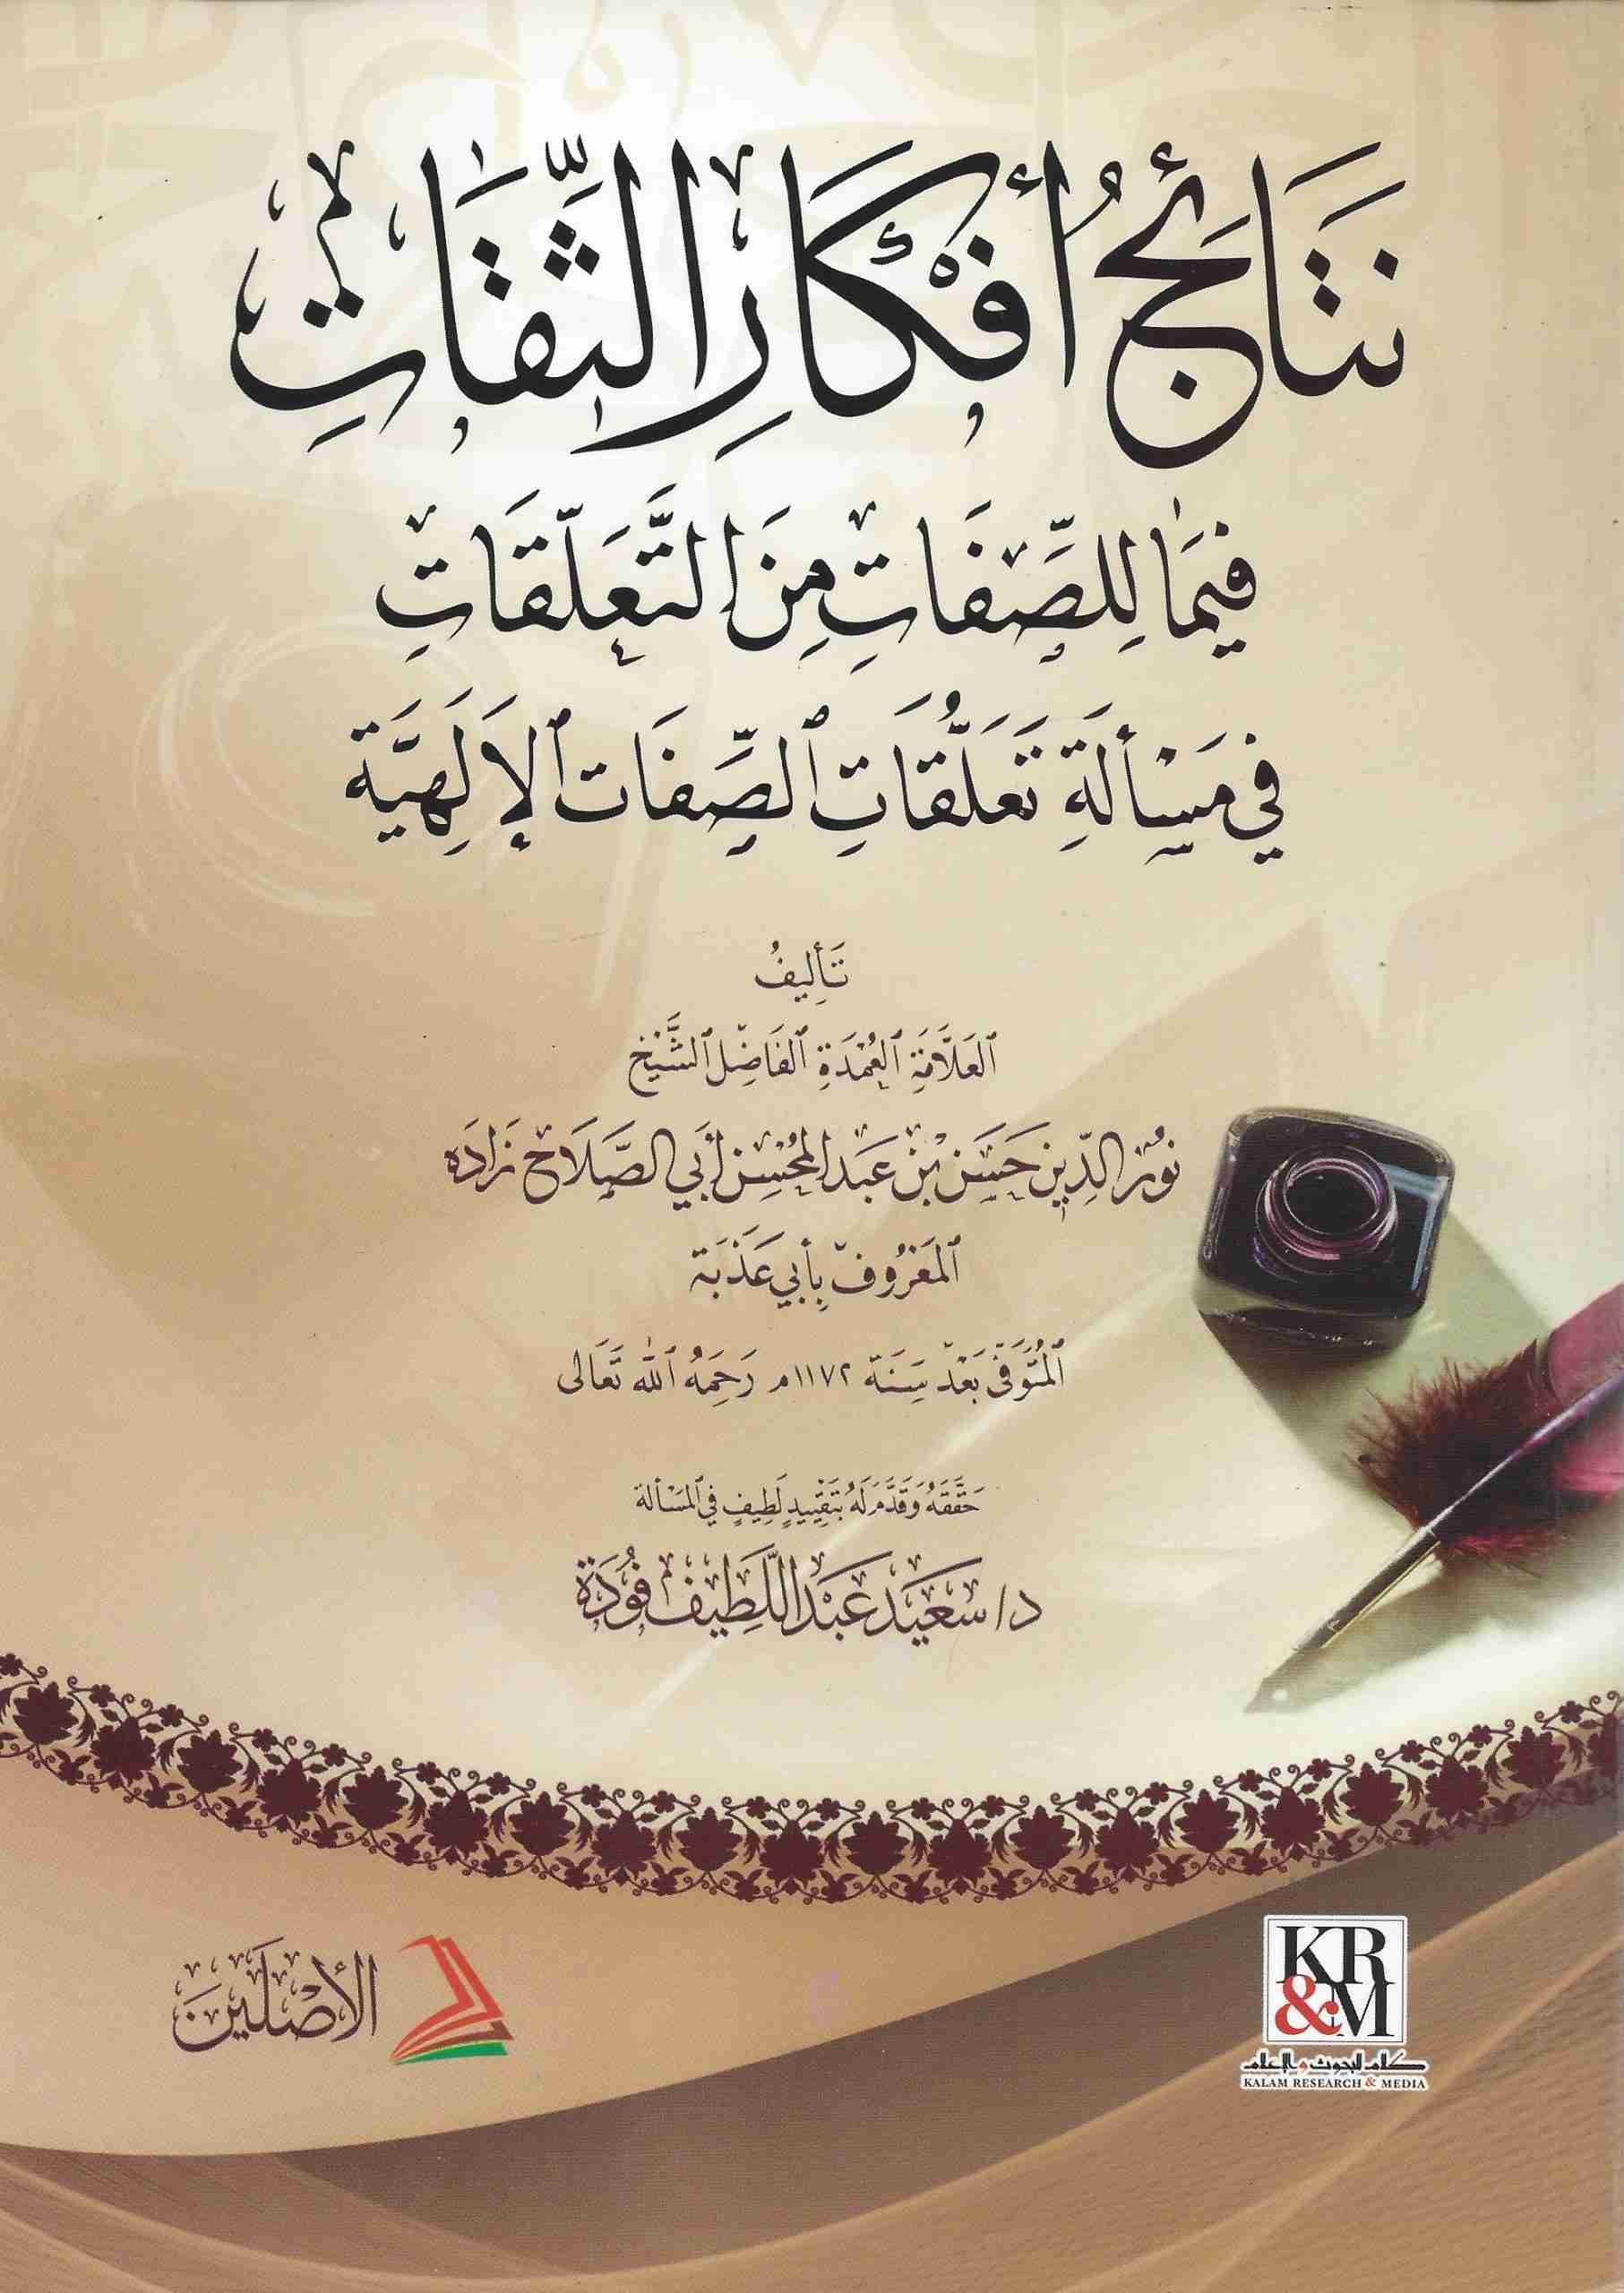 نَتَائِجُ أَفْكَارِ الثِّقَاتِ
فِيمَا لِلصِّفَاتِ مِنَ التَّعَلُّقَاتِ
فِي مَسْأَلَةِ تَعَلُّقَاتِ ٱلصِّفَات ٱلإِلَهِيَّة
تَأْلِيفُ
ٱلعَلَّامَةِ ٱلعُمْدَةِ ٱلفَاضِل ٱلشَّيْخ
نُور الدِّين حَسَن بْن عَبد المُحْسِن أَبي الصَّلَاح زَادَه
ٱلمَعْرُوف بِأَبي عَذَبَة
ٱلمُتَوَفَّى بَعْد سَنَة ١١٧٢م رَحِمَهُ ٱللَّه تَعَالى
حَقَّقَهُ وَقَدَّمَ لَهُ بِتَقْيِيدٍ لَطِيفٍ فِي ٱلمَسْأَلة
د/ سَعِيد عَبْد اللَّطِيف فُودَة
الأَصْلَين
KR
&M
كلام للبحوث والإعلام
KALAM RESEARCH & MEDIA